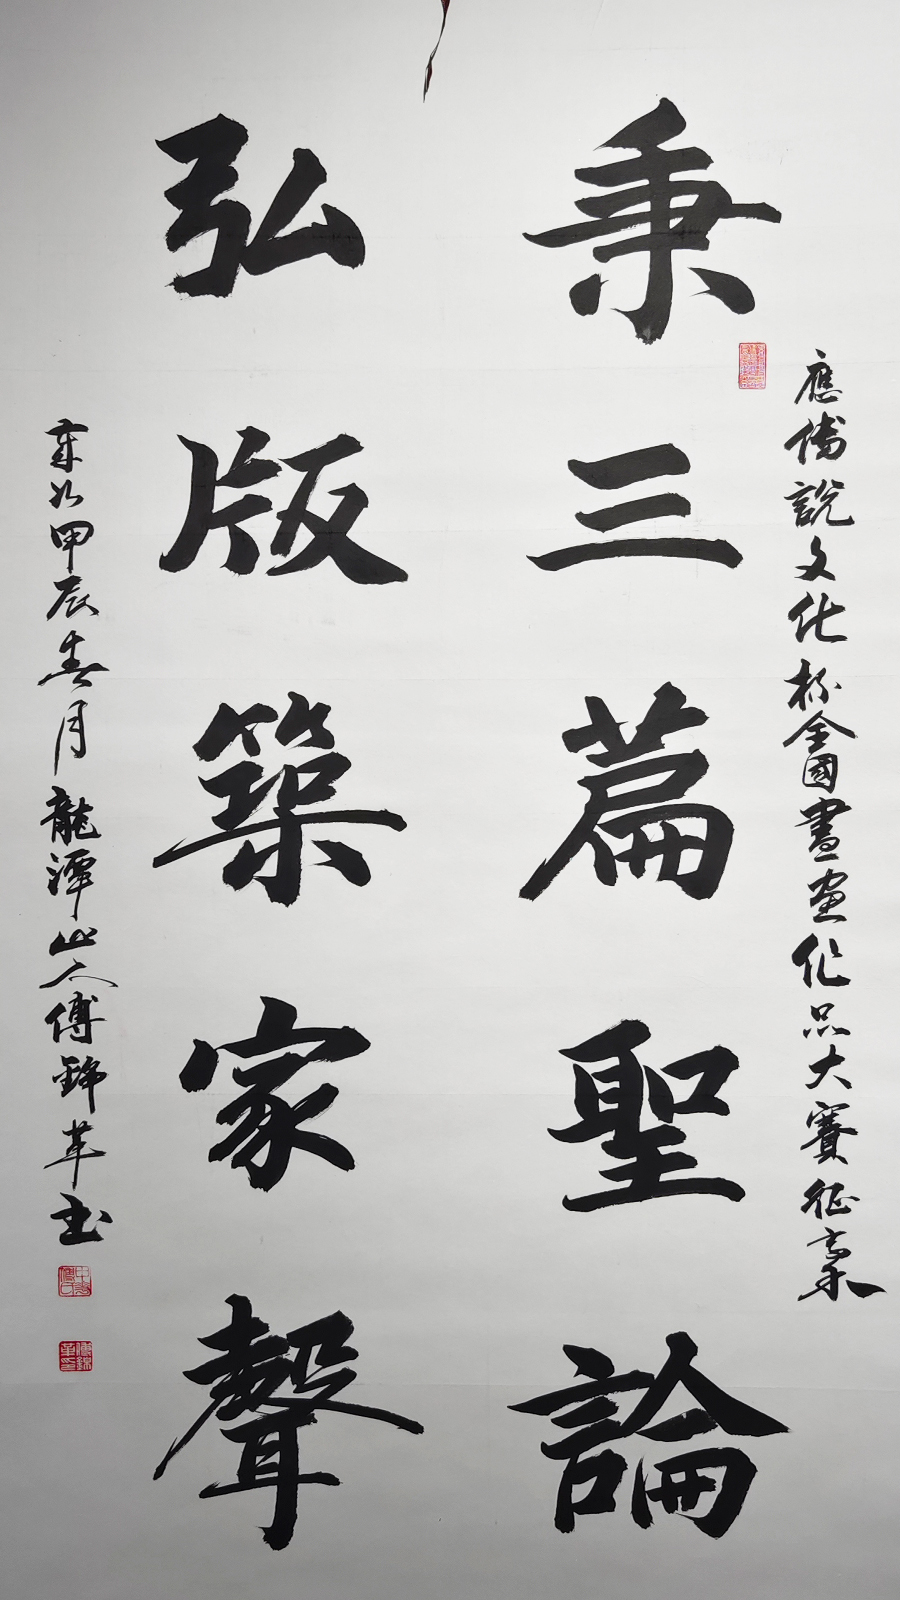 應傅說文化杯全國書画作品大賽征稾
秉三篇聖論
弘版築家聲
甲辰春月龍潭山人傅錦革书